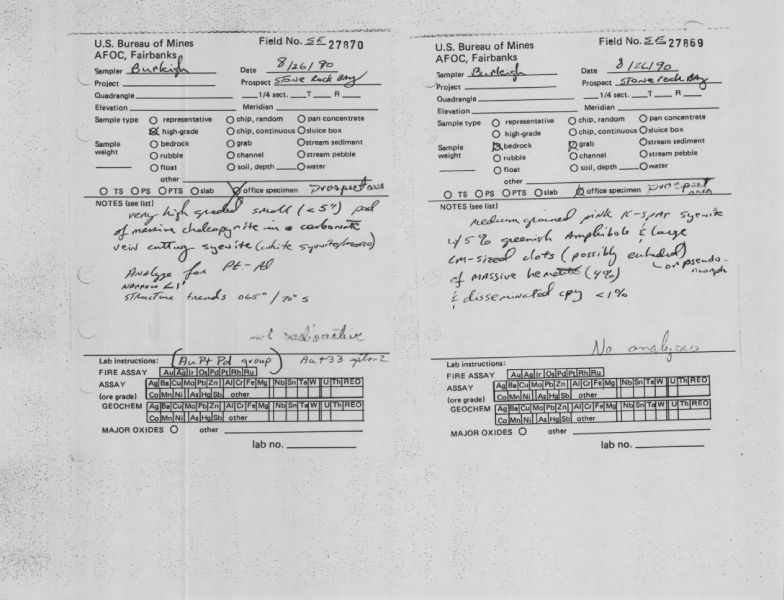 U.S. Bureau of Mines
AFOC, Fairbanks
Field No. SE 27870
Sampler Burleigh Date 8/26/90
Project Prospect Stone Rock Bay
Quadrangle 1/4 sect. T R
Elevation Meridian
Sample type representative chip, random pan concentrate
high-grade chip, continuous sluice box
Sample weight bedrock grab stream sediment
rubble channel stream pebble
float soil, depth water
other
TS PS PTS slab office specimen
NOTES (see list)
very high graded small (<5") pod
of massive chalcopyrite in a carbonate
vein cutting syenite (white syenite)
Analyze for Pt-Pd
Narrow <1'
structure trends 065°/70° S
not radioactive
Lab instructions: (Au Pt Pd group) Au+33 option 2
FIRE ASSAY Au Ag Ir Os Pd Pt Rh Ru
ASSAY Ag Ba Cu Mo Pb Zn Al Cr Fe Mg Nb Sn Ta W U Th REO
(ore grade) Co Mn Ni As Hg Sb other
GEOCHEM Ag Ba Cu Mo Pb Zn Al Cr Fe Mg Nb Sn Ta W U Th REO
Co Mn Ni As Hg Sb other
MAJOR OXIDES other
lab no.
U.S. Bureau of Mines
AFOC, Fairbanks
Field No. SE 27869
Sampler Burleigh Date 8/26/90
Project Prospect Stone Rock Bay
Quadrangle 1/4 sect. T R
Elevation Meridian
Sample type representative chip, random pan concentrate
high-grade chip, continuous sluice box
Sample weight bedrock grab stream sediment
rubble channel stream pebble
float soil, depth water
other
TS PS PTS slab office specimen prospect area
NOTES (see list)
medium grained pink K-spar syenite
w/5% greenish Amphibole & large
cm-sized clots (possibly euhedral)
of massive hematite (4%) or pseudo-
morph
& disseminated cpy <1%
No analyses
Lab instructions:
FIRE ASSAY Au Ag Ir Os Pd Pt Rh Ru
ASSAY Ag Ba Cu Mo Pb Zn Al Cr Fe Mg Nb Sn Ta W U Th REO
(ore grade) Co Mn Ni As Hg Sb other
GEOCHEM Ag Ba Cu Mo Pb Zn Al Cr Fe Mg Nb Sn Ta W U Th REO
Co Mn Ni As Hg Sb other
MAJOR OXIDES other
lab no.